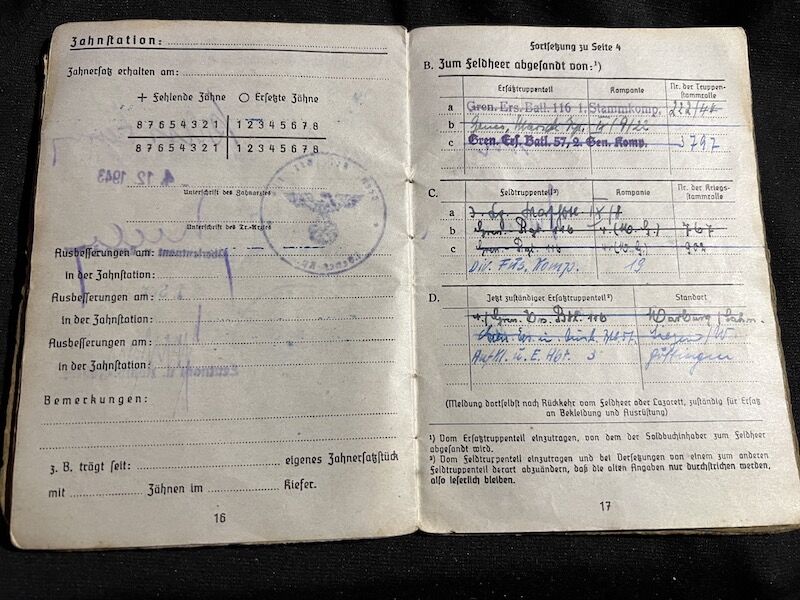 Zahnstation:
Zahnersatz erhalten am:
+ Fehlende Zähne ○ Ersetzte Zähne
8 7 6 5 4 3 2 1 | 1 2 3 4 5 6 7 8
8 7 6 5 4 3 2 1 | 1 2 3 4 5 6 7 8
4. 12. 1943
Unterschrift des Zahnarztes
Unterschrift des Tr.-Arztes
Ausbesserungen am:
in der Zahnstation:
Ausbesserungen am:
in der Zahnstation:
Ausbesserungen am:
in der Zahnstation:
Bemerkungen:
z. B. trägt seit: eigenes Zahnersatzstück
mit Zähnen im Kiefer.
16
Fortsetzung zu Seite 4
B. Zum Feldheer abgesandt von:¹)
Ersatztruppenteil Kompanie Nr. der Truppen-
stammrolle
a Gren. Ers. Batl. 116 1. Stammkomp. 222/44
b
c Gren. Ers. Batl. 57, 2. Gen. Komp. 3797
C. Feldtruppenteil²) Kompanie Nr. der Kriegs-
stammrolle
a
b Gren. Rgt. 116 4. (M.G.) 767
c Gren. Rgt. 116 4. (M.G.) 902
Div. Füs. Komp. 19
D. Jetzt zuständiger Ersatztruppenteil²) Standort
4./Gren. Ers. Btl. 116 /Lahn.
Siegen/W
Aufkl. u. E. Abt. 3 Göttingen
(Meldung dortselbst nach Rückkehr vom Feldheer oder Lazarett, zuständig für Ersatz
an Bekleidung und Ausrüstung)
¹) Vom Ersatztruppenteil einzutragen, von dem der Soldbuchinhaber zum Feldheer
abgesandt wird.
²) Vom Feldtruppenteil einzutragen und bei Versetzungen von einem zum anderen
Feldtruppenteil derart abzuändern, daß die alten Angaben nur durchstrichen werden,
also leserlich bleiben.
17